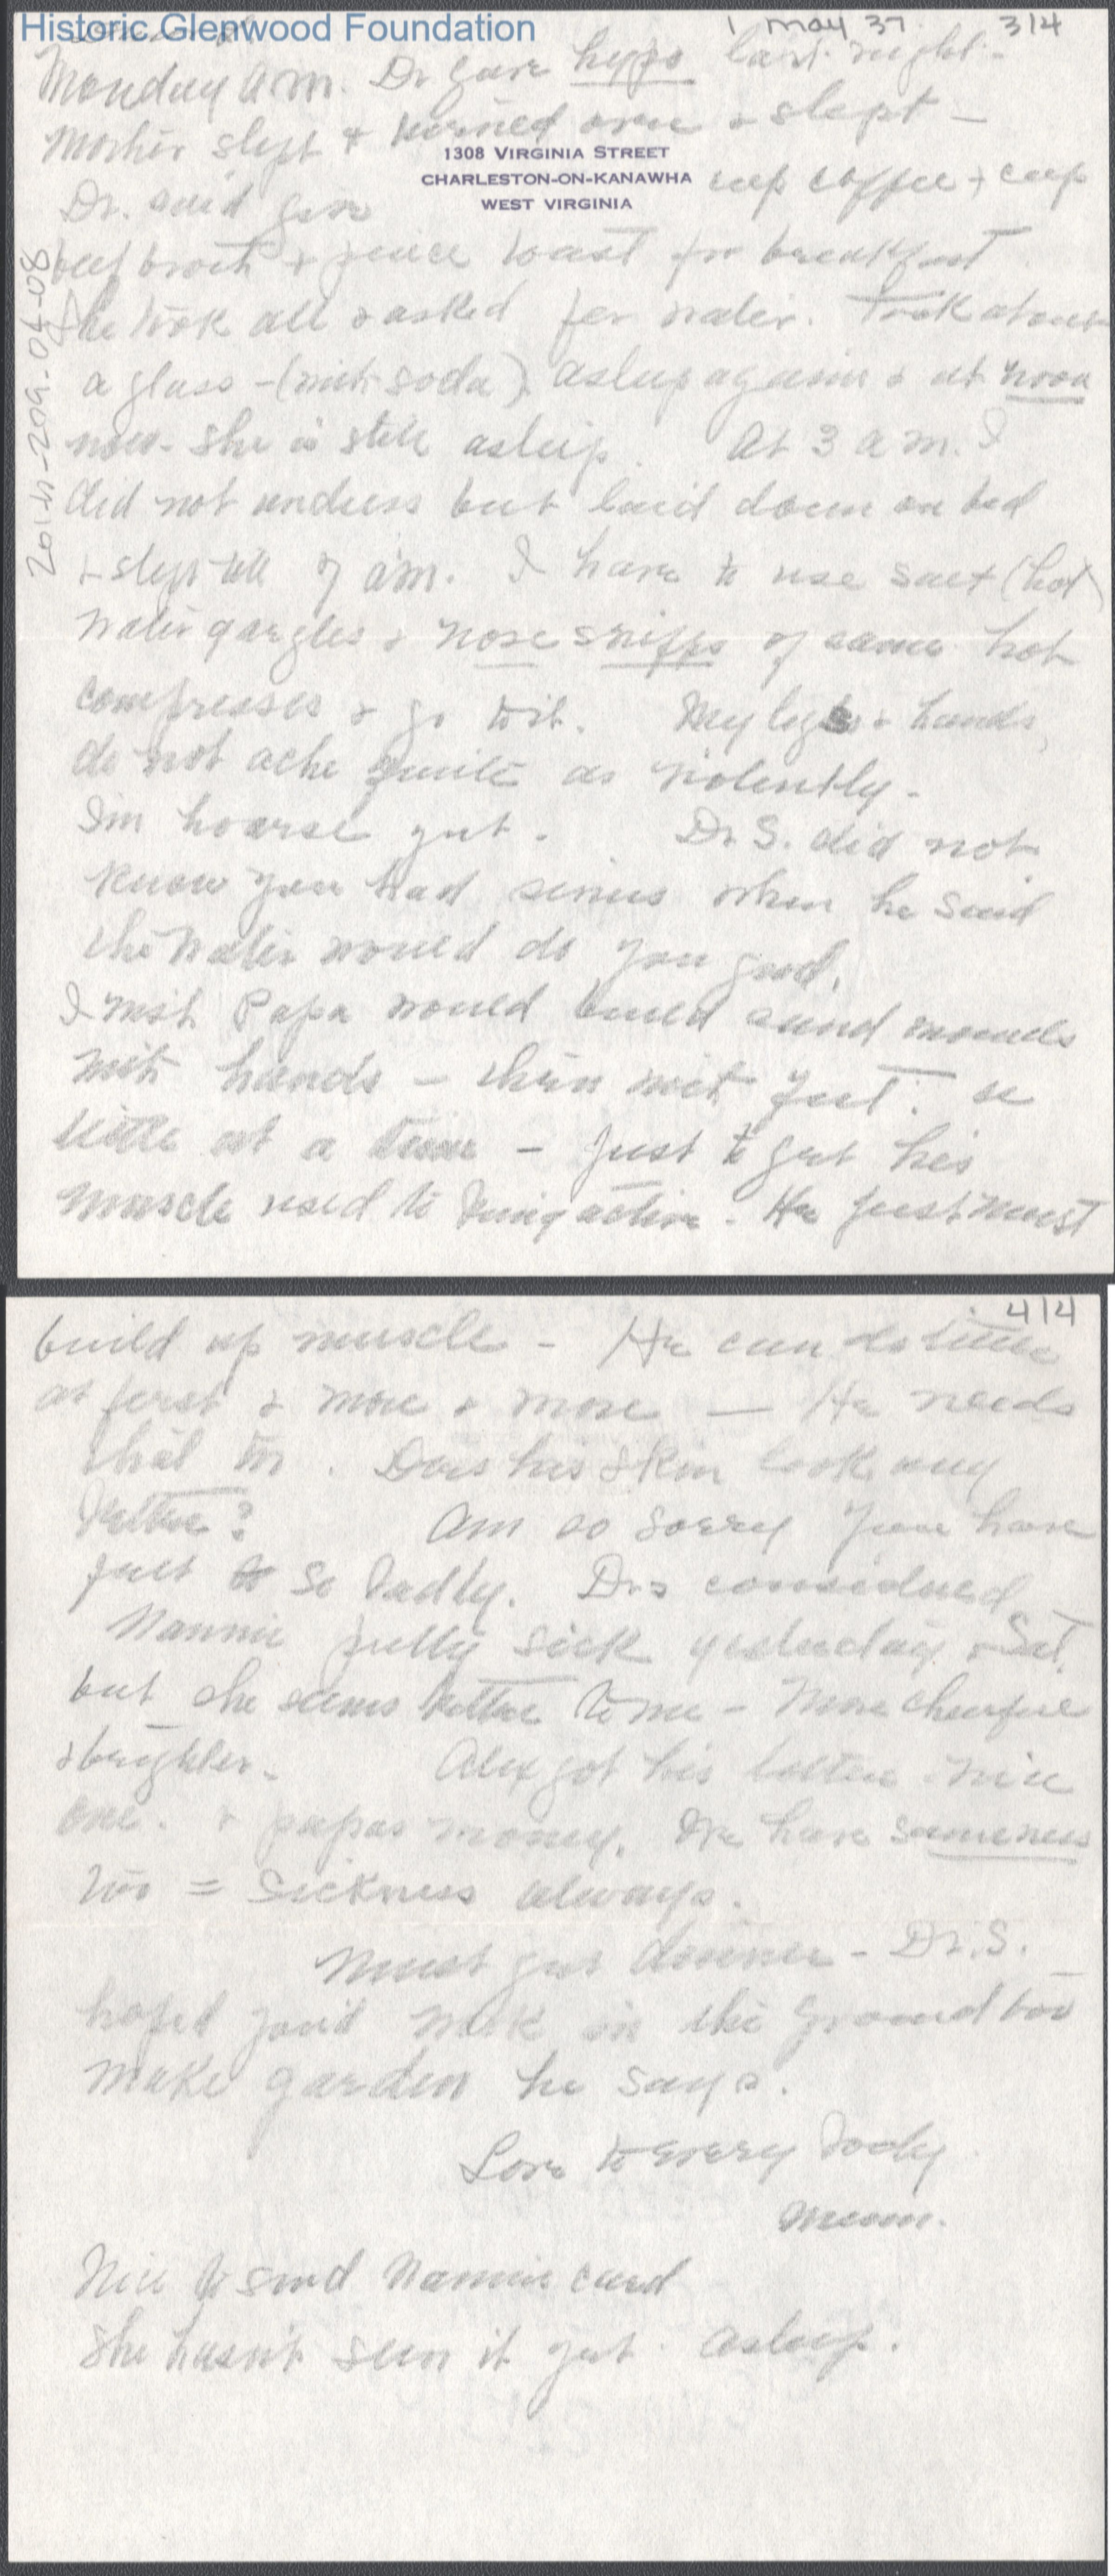 Historic Glenwood Foundation
1 May 37 3/4
Monday a.m. Dr gave hypo last night -
Mother slept & turned over & slept -
1308 VIRGINIA STREET
CHARLESTON-ON-KANAWHA
WEST VIRGINIA
Dr. said give cup coffee + cup
beef broth + piece toast for breakfast
She took all & asked for water. Took about
a glass - (with soda) asleep again & at noon
now - she is still asleep. At 3 a m. I
did not undress but laid down on bed
& slept till 7 am. I have to use salt (hot)
water gargles & nose sniffs of same hot
compresses & go to it. My legs & hands,
do not ache quite as violently -
I'm hoarse yet - Dr S. did not
know you had sinus when he said
the water would do you good.
I wish Papa would build sand mounds
with hands - then with feet. a
little at a time - Just to get his
muscle used to being active. He just must
2014-209-04-08
4/4
build up muscle - He can do little
at first & more & more — He needs
that too. Does his skin look any
better? Am so sorry you have
felt so badly. Drs considered
Nannie pretty sick yesterday & Sat.
but she seems better to me - More cheerful
& brighter - Alex got his letter - nice
one. & papas money. We have sameness
too = sickness always.
Must get dinner - Dr. S.
hoped you'd work in the ground too
make garden he says.
Love to every body
Mum.
Nice to send Nannie card
She hasn't seen it yet. asleep.